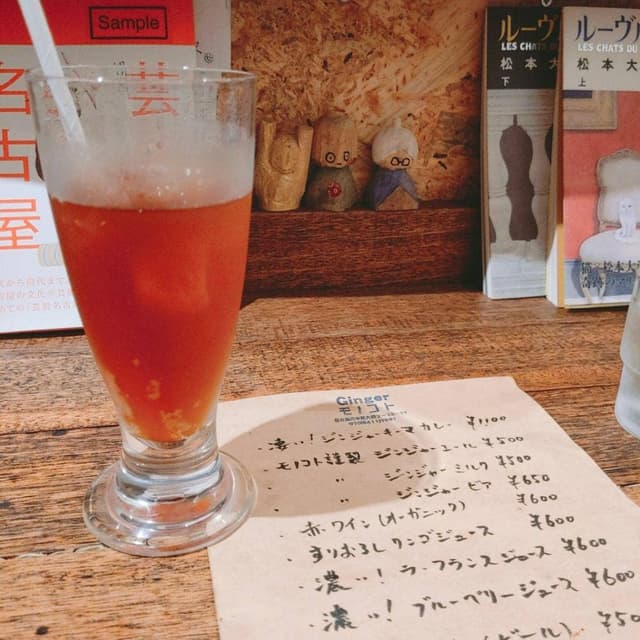 Sample
芸
名古屋
ルーヴル
LES CHATS DU
松本大
下
ルーヴル
LES CHATS DU
松本大
上
Ginger
モノコト
濃い!ジンジャーキーマカレー ¥1100
・モノコト謹製 ジンジャーエール ¥500
・ 〃 ジンジャーミルク ¥500
・ 〃 ジンジャービア ¥650
・赤ワイン(オーガニック) ¥600
・すりおろしリンゴジュース ¥600
・濃い!ラ・フランスジュース ¥600
・濃い!ブルーベリージュース ¥600